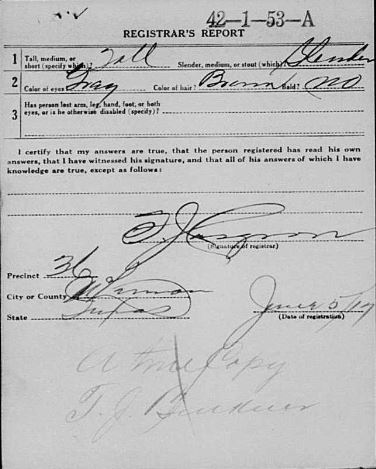 42-1-53-A
REGISTRAR'S REPORT
1 Tall, medium, or short (specify which)? Tall Slender, medium, or stout (which)? Slender
2 Color of eyes? Gray Color of hair? Brown Bald? no
3 Has person lost arm, leg, hand, foot, or both eyes, or is he otherwise disabled (specify)?
I certify that my answers are true, that the person registered has read his own
answers, that I have witnessed his signature, and that all of his answers of which I have
knowledge are true, except as follows:
(Signature of registrar)
Precinct 36
City or County
State Texas
June 5/17
(Date of registration)
A true Copy
T. J.